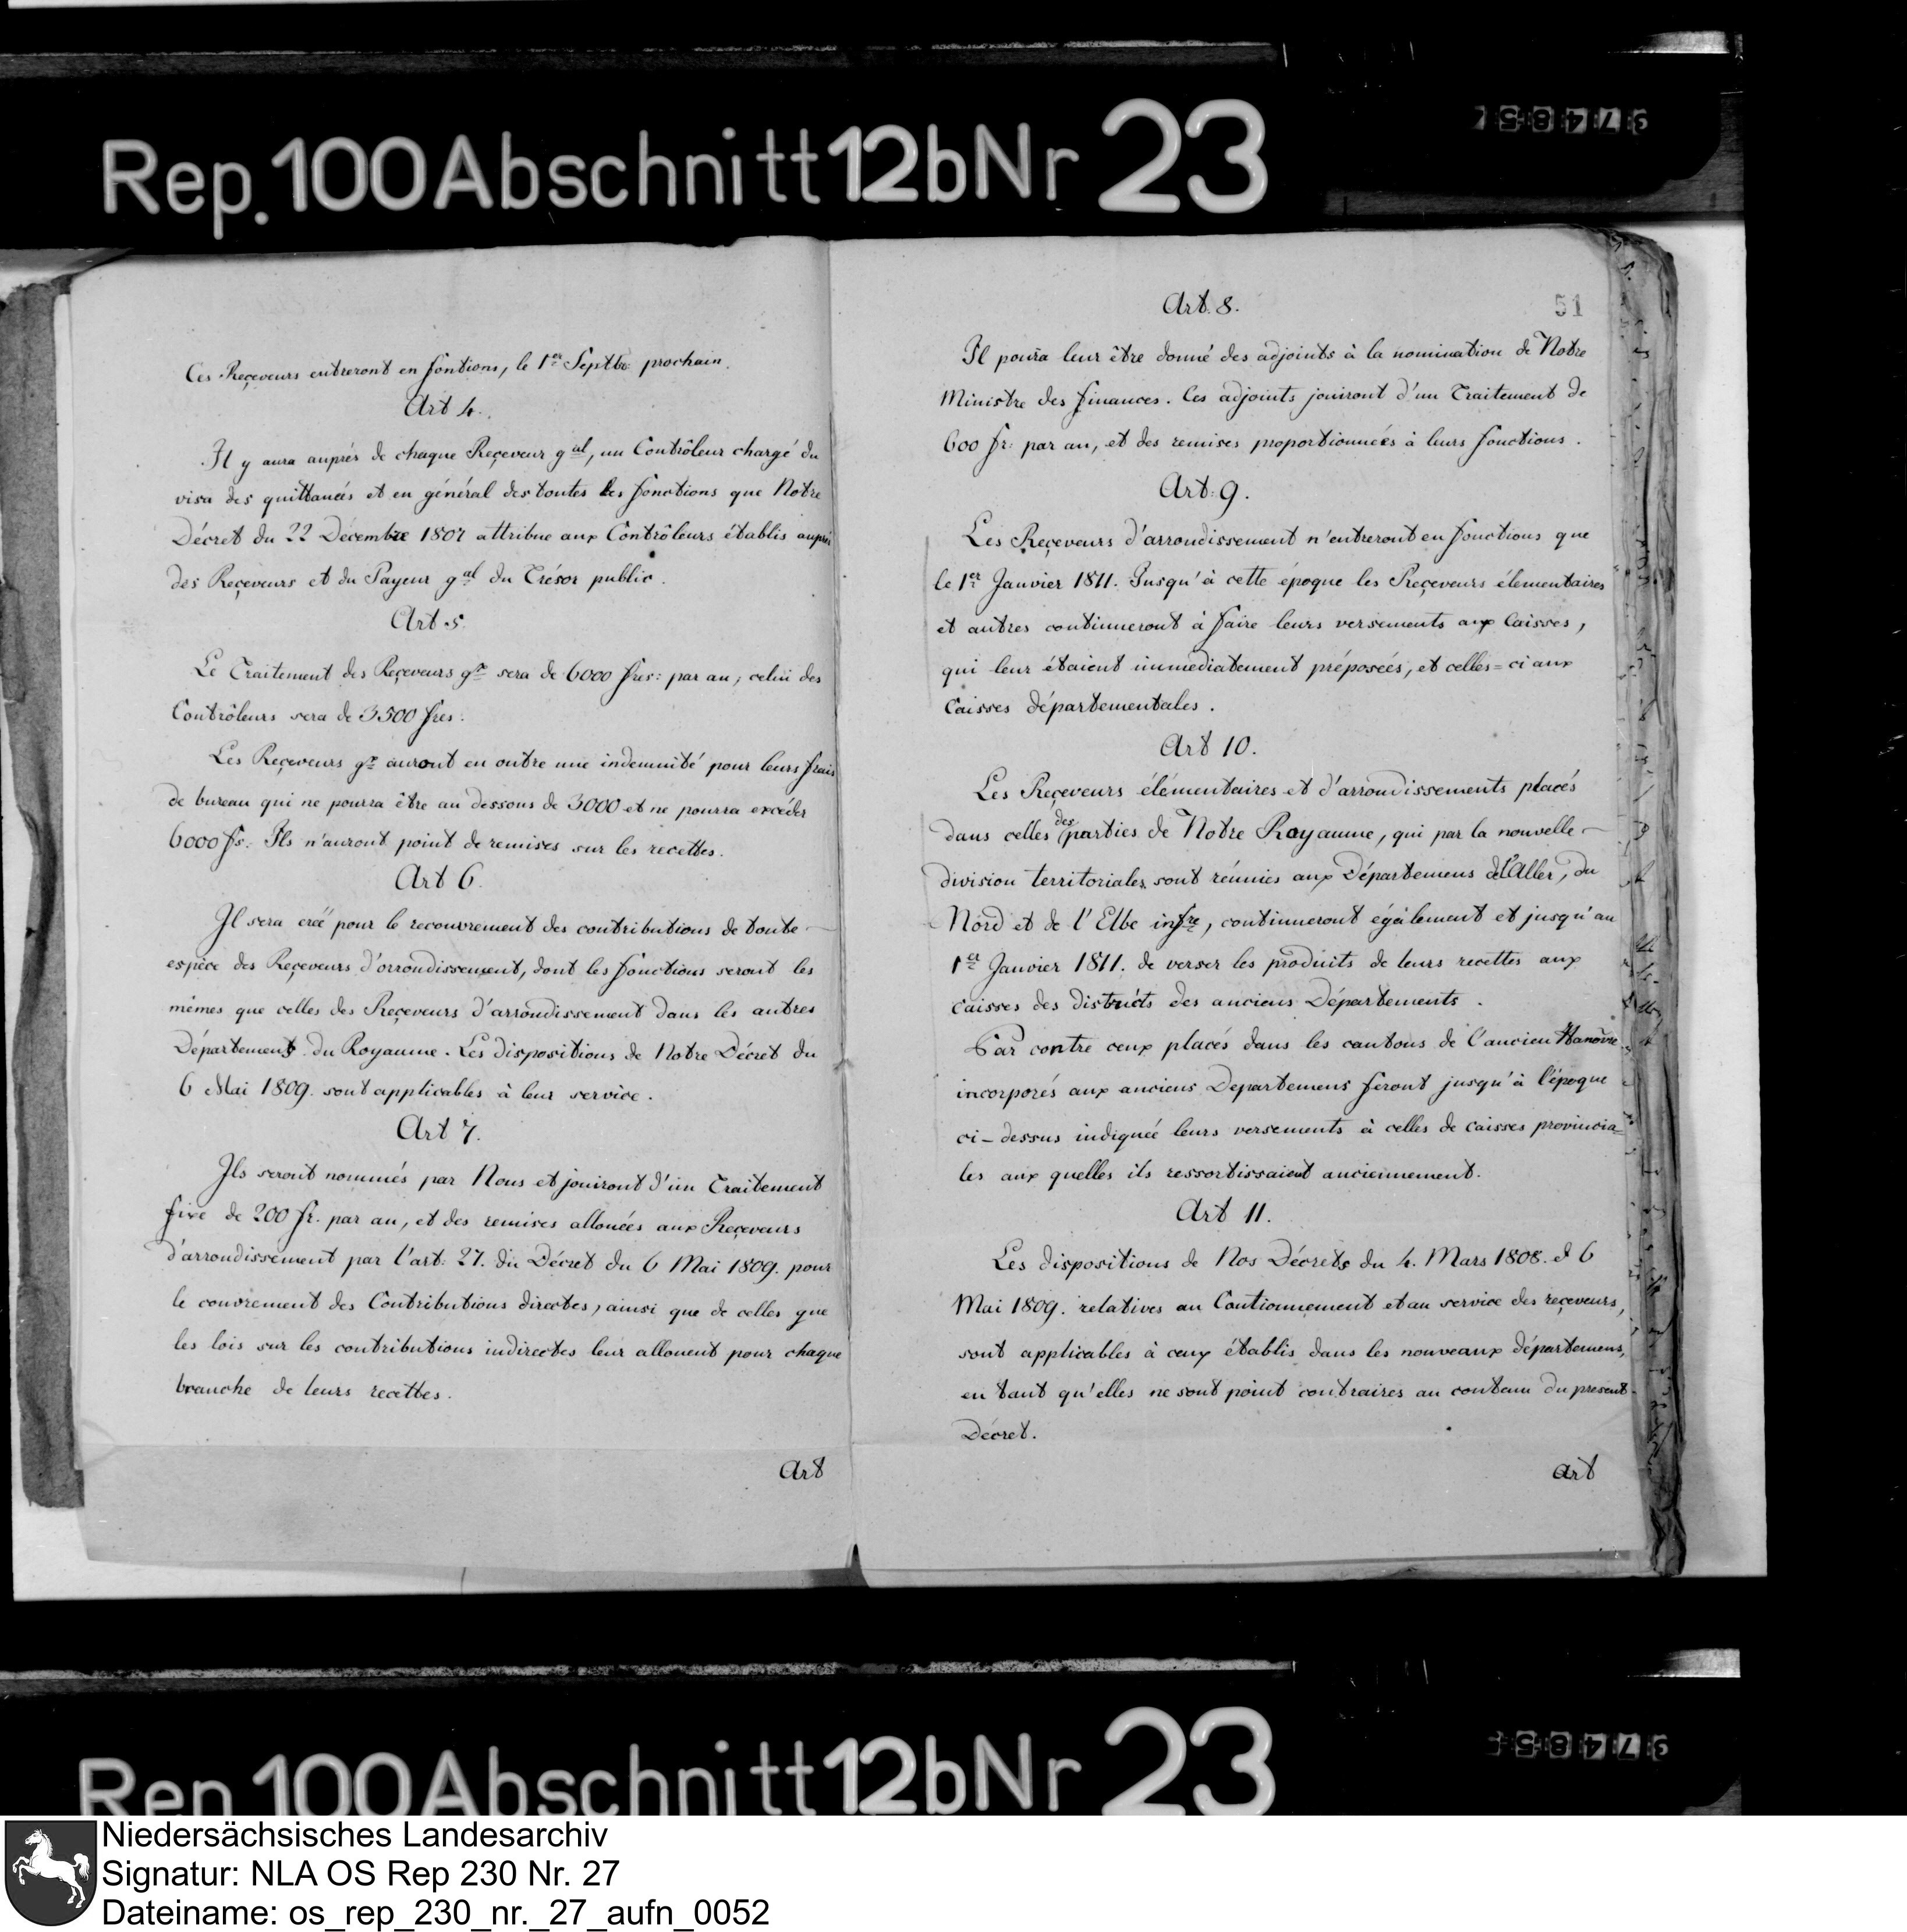 Rep. 100 Abschnitt 12b Nr 23
Ces Reçeveurs entreront en fontions, le 1er Septbr: prochain.
Art 4.
Il y aura auprés de chaque Reçeveur gal, un Contrôleur chargé du
visa des quittancés et en général des toutes les fonctions que Notre
Décret du 22 Décembre 1807 attribue aux Contrôleurs établis auprés
des Reçeveurs et du Payeur gal du Trésor public.
Art. 5
Le Traitement des Reçeveurs gx sera de 6000 frcs: par an, celui des
Contrôleurs sera de 3500 frcs.
Les Reçeveurs gx auront en outre une indemnité pour leurs frais
de bureau qui ne pourra être au dessous de 3000 et ne pourra excéder
6000 fs. Ils n'auront point de remises sur les recettes.
Art 6.
Il sera créé pour le recouvrement des contributions de toute
espèce des Reçeveurs d'orrondissement, dont les fonctions seront les
mêmes que celles des Reçeveurs d'arrondissement dans les autres
Département du Royaume. Les dispositions de Notre Décret du
6 Mai 1809. sont applicables à leur service.
Art 7.
Ils seront nommés par Nous et jouiront d'un Traitement
fixe de 200 fr. par an, et des remises allouées aux Reçeveurs
d'arrondissement par l'art: 27. du Décret du 6 Mai 1809. pour
le couvrement des Contributions directes, ainsi que de celles que
les lois sur les contributions indirectes leur allouent pour chaque
branche de leurs recettes.
Art
51
Art. 8.
Il poura leur être donné des adjoints à la nomination de Notre
Ministre des finances. Ces adjoints jouiront d'un Traitement de
600 fr: par an, et des remises proportionnées à leurs fonctions.
Art: 9.
Les Reçeveurs d'arrondissement n'entreront en fonctions que
le 1er Janvier 1811. Jusqu'à cette époque les Reçeveurs élementaires
et autres continueront à faire leurs versements aux Caisses,
qui leur étaient immédiatement préposeés, et celles=ci aux
Caisses départementales.
Art 10.
Les Reçeveurs élémentaires et d'arrondissements placés
dans celles des parties de Notre Royaume, qui par la nouvelle
division territoriales sont réunies aux Départemens de l'Aller, du
Nord et de l'Elbe infre, continueront également et jusqu'au
1er Janvier 1811. de verser les produits de leurs recettes aux
caisses des districts des anciens Départements.
Par contre ceux placés dans les cantons de l'ancien Hanovre
incorporés aux anciens Departemens feront jusqu'à l'époque
ci-dessus indiquée leurs versements à celles de caisses provincia=
les aux quelles ils ressortissaient anciennement.
Art 11.
Les dispositions de Nos Décrets du 4. Mars 1808. et 6
Mai 1809. relatives au Cautionnement et au service des reçeveurs,
sont applicables à ceux établis dans les nouveaux départemens,
en tant qu'elles ne sont point contraires au contenu du present
Décret.
Art
Rep 100 Abschnitt 12b Nr 23
Niedersächsisches Landesarchiv
Signatur: NLA OS Rep 230 Nr. 27
Dateiname: os_rep_230_nr._27_aufn_0052